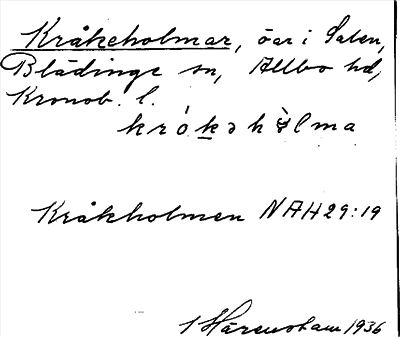 Kråkeholmar, öar i Salen,
Blädinge sn, Allbo hd,
Kronob. l.
krókəhòlma
Kråkholmen NAH29:19
1936